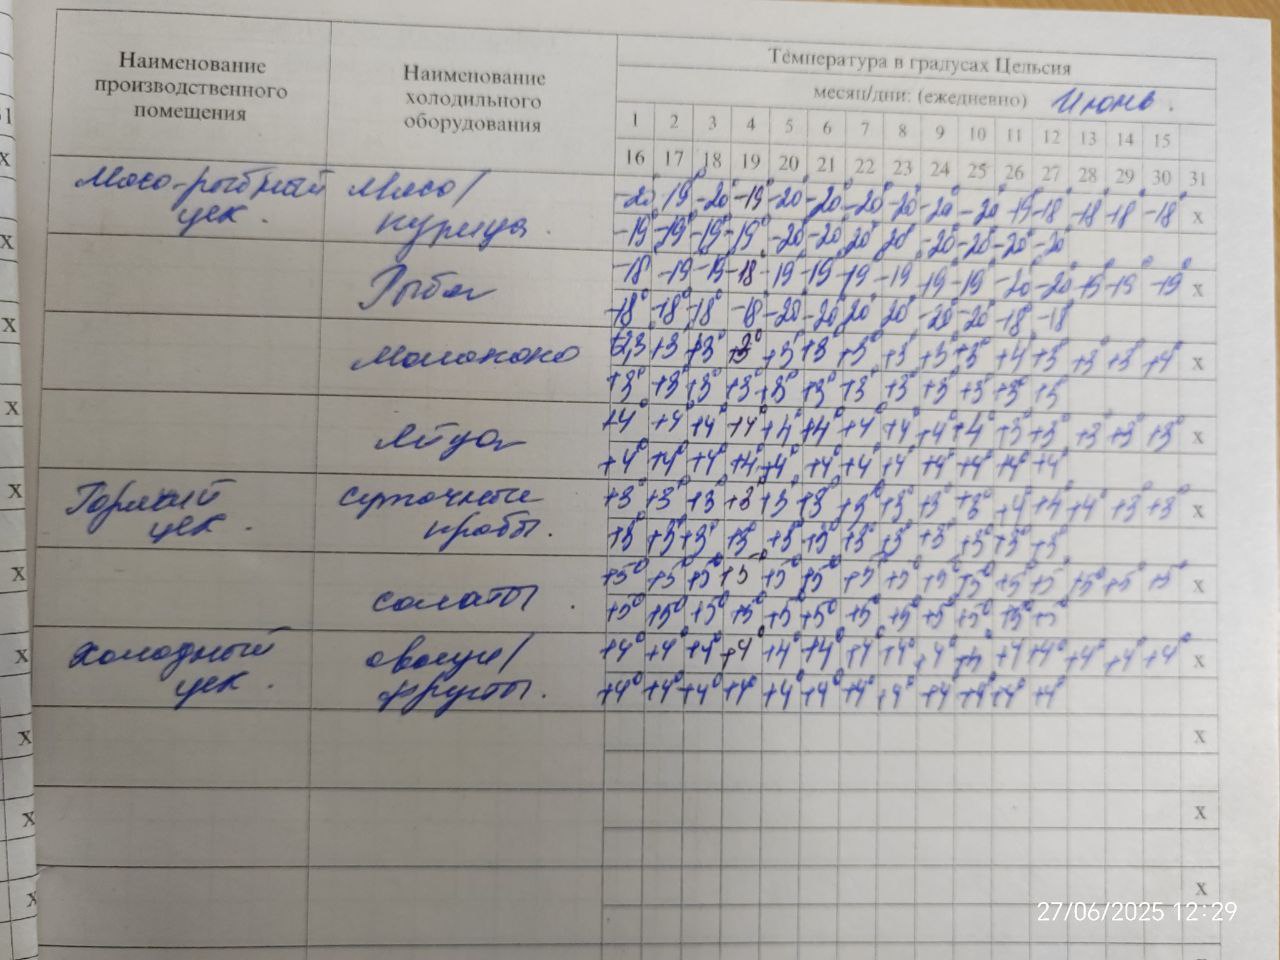 Наименование производственного помещения
Наименование холодильного оборудования
Температура в градусах Цельсия
месяц/дни: (ежедневно) Июнь.
1 2 3 4 5 6 7 8 9 10 11 12 13 14 15
16 17 18 19 20 21 22 23 24 25 26 27 28 29 30 31
Мясо-рыбный цех. Мясо/курица.
-20° -19° -20° -19° -20° -20° -20° -20° -20° -20° -19 -18 -18 -18 -18° x
-19° -19° -19° -19° -20 -20 -20 -20 -20° -20° -20° -20
Рыба
-18 -19 -19 -18 -19 -19 -19 -19 -19 -19 -20 -20 -19 -19° x
-18° -18° -18° -18 -20 -20 -20 -20 -20 -20 -18 -18
+3 +3° +3 +3 +3° +3 +3 +3° +4 +3° +3 +3 +4° x
+3° +3° +3° +3 +3° +3° +3 +3° +3° +3 +3° +3
+4° +4° +4 +4° +4 +4° +4 +4 +4° +4 +3 +3° +3 +3° +3° x
+4° +4° +4° +4 +4° +4 +4° +4 +4° +4° +4° +4°
Горячий цех. суточные пробы.
+3° +3° +3 +3 +3 +3 +3 +3 +3 +3 +4° +4 +4 +3° +3° x
+3° +3 +3° +3 +3 +3 +3 +3 +3 +3 +3° +3
салаты.
+5° +5° +5° +5° +5° +5° +5 +5 +5 +5° +5 +5 +5 +5 +5 x
+5° +5° +5° +5° +5° +5° +5° +5 +5° +5° +5 +5
Холодный цех. овощи/фрукты.
+4° +4° +4° +4° +4° +4° +4 +4° +4° +4 +4 +4° +4 +4 +4 x
+4° +4° +4° +4° +4° +4° +4° +4° +4 +4° +4° +4°
x
x
x
27/06/2025 12:29